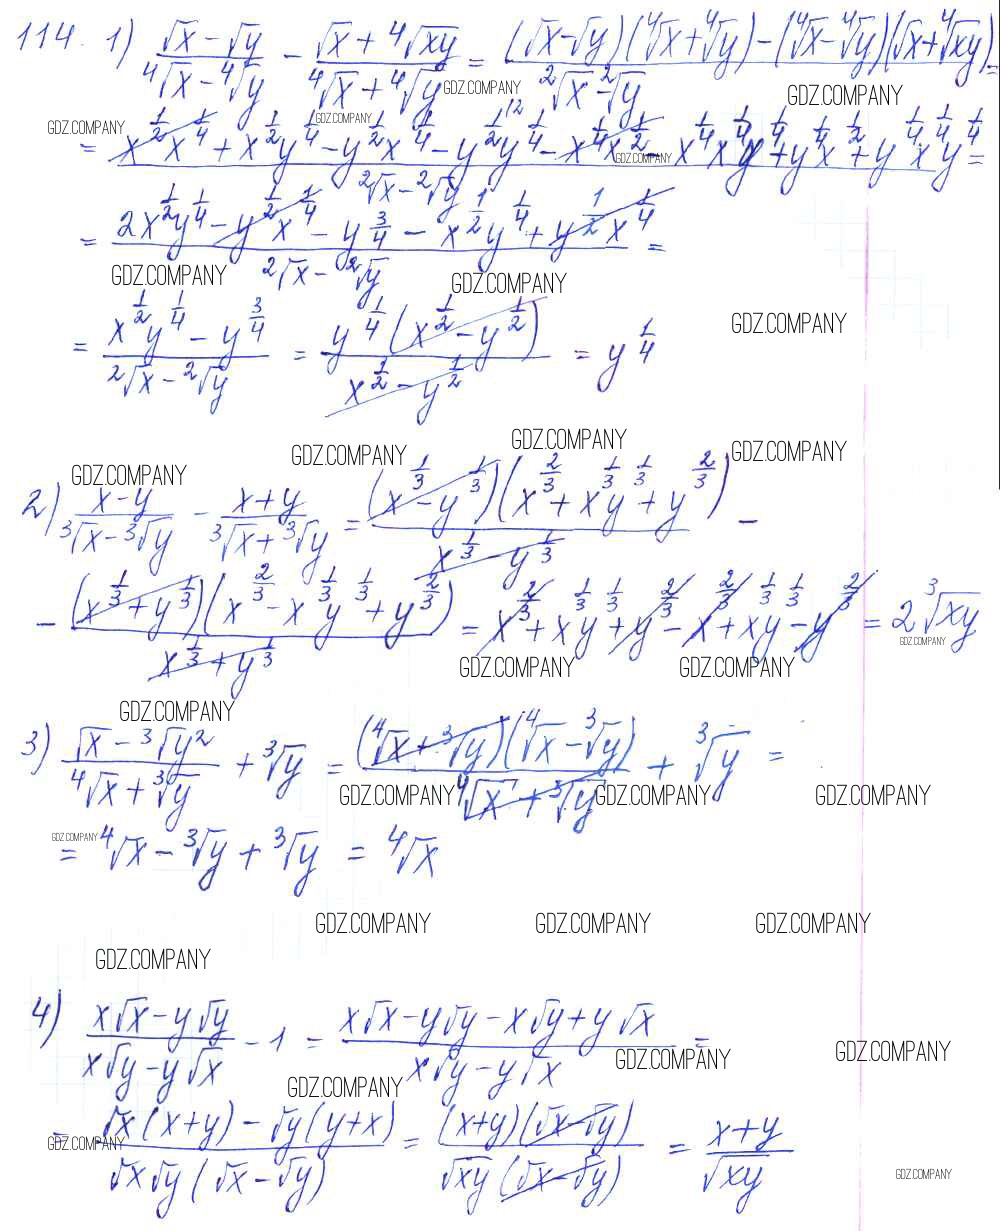 114. 1) (√x − √y)/(⁴√x − ⁴√y) − (√x + ⁴√xy)/(⁴√x + ⁴√y) = ((√x − √y)(⁴√x + ⁴√y) − (⁴√x − ⁴√y)(√x + ⁴√xy))/(²√x − ²√y) =
GDZ.COMPANY GDZ.COMPANY
GDZ.COMPANY GDZ.COMPANY
= (x^(1/2) x^(1/4) + x^(1/2) y^(1/4) − y^(1/2) x^(1/4) − y^(1/2) y^(1/4) − x^(1/4) x^(1/2) − x^(1/4) x^(1/4) y^(1/4) + y^(1/4) x^(1/2) + y^(1/4) x^(1/4) y^(1/4))/(²√x − ²√y) =
GDZ.COMPANY
= (2x^(1/2) y^(1/4) − y^(1/2) x^(1/4) − y^(3/4) − x^(1/2) y^(1/4) + y^(1/2) x^(1/4))/(²√x − ²√y) =
GDZ.COMPANY GDZ.COMPANY
GDZ.COMPANY
= (x^(1/2) y^(1/4) − y^(3/4))/(²√x − ²√y) = (y^(1/4)(x^(1/2) − y^(1/2)))/(x^(1/2) − y^(1/2)) = y^(1/4)
GDZ.COMPANY GDZ.COMPANY GDZ.COMPANY GDZ.COMPANY
2) (x − y)/(³√x − ³√y) − (x + y)/(³√x + ³√y) = ((x^(1/3) − y^(1/3))(x^(2/3) + x^(1/3) y^(1/3) + y^(2/3)))/(x^(1/3) − y^(1/3)) −
− ((x^(1/3) + y^(1/3))(x^(2/3) − x^(1/3) y^(1/3) + y^(2/3)))/(x^(1/3) + y^(1/3)) = x^(2/3) + x^(1/3) y^(1/3) + y^(2/3) − x^(2/3) + x^(1/3) y^(1/3) − y^(2/3) = 2 ³√xy
GDZ.COMPANY
GDZ.COMPANY GDZ.COMPANY
GDZ.COMPANY
3) (√x − ³√y²)/(⁴√x + ³√y) + ³√y = ((⁴√x + ³√y)(⁴√x − ³√y))/(⁴√x + ³√y) + ³√y =
GDZ.COMPANY GDZ.COMPANY GDZ.COMPANY
GDZ.COMPANY
= ⁴√x − ³√y + ³√y = ⁴√x
GDZ.COMPANY GDZ.COMPANY GDZ.COMPANY
GDZ.COMPANY
4) (x√x − y√y)/(x√y − y√x) − 1 = (x√x − y√y − x√y + y√x)/(x√y − y√x) =
GDZ.COMPANY GDZ.COMPANY GDZ.COMPANY
= (√x(x + y) − √y(y + x))/(√x√y(√x − √y)) = ((x + y)(√x − √y))/(√xy(√x − √y)) = (x + y)/√xy
GDZ.COMPANY GDZ.COMPANY